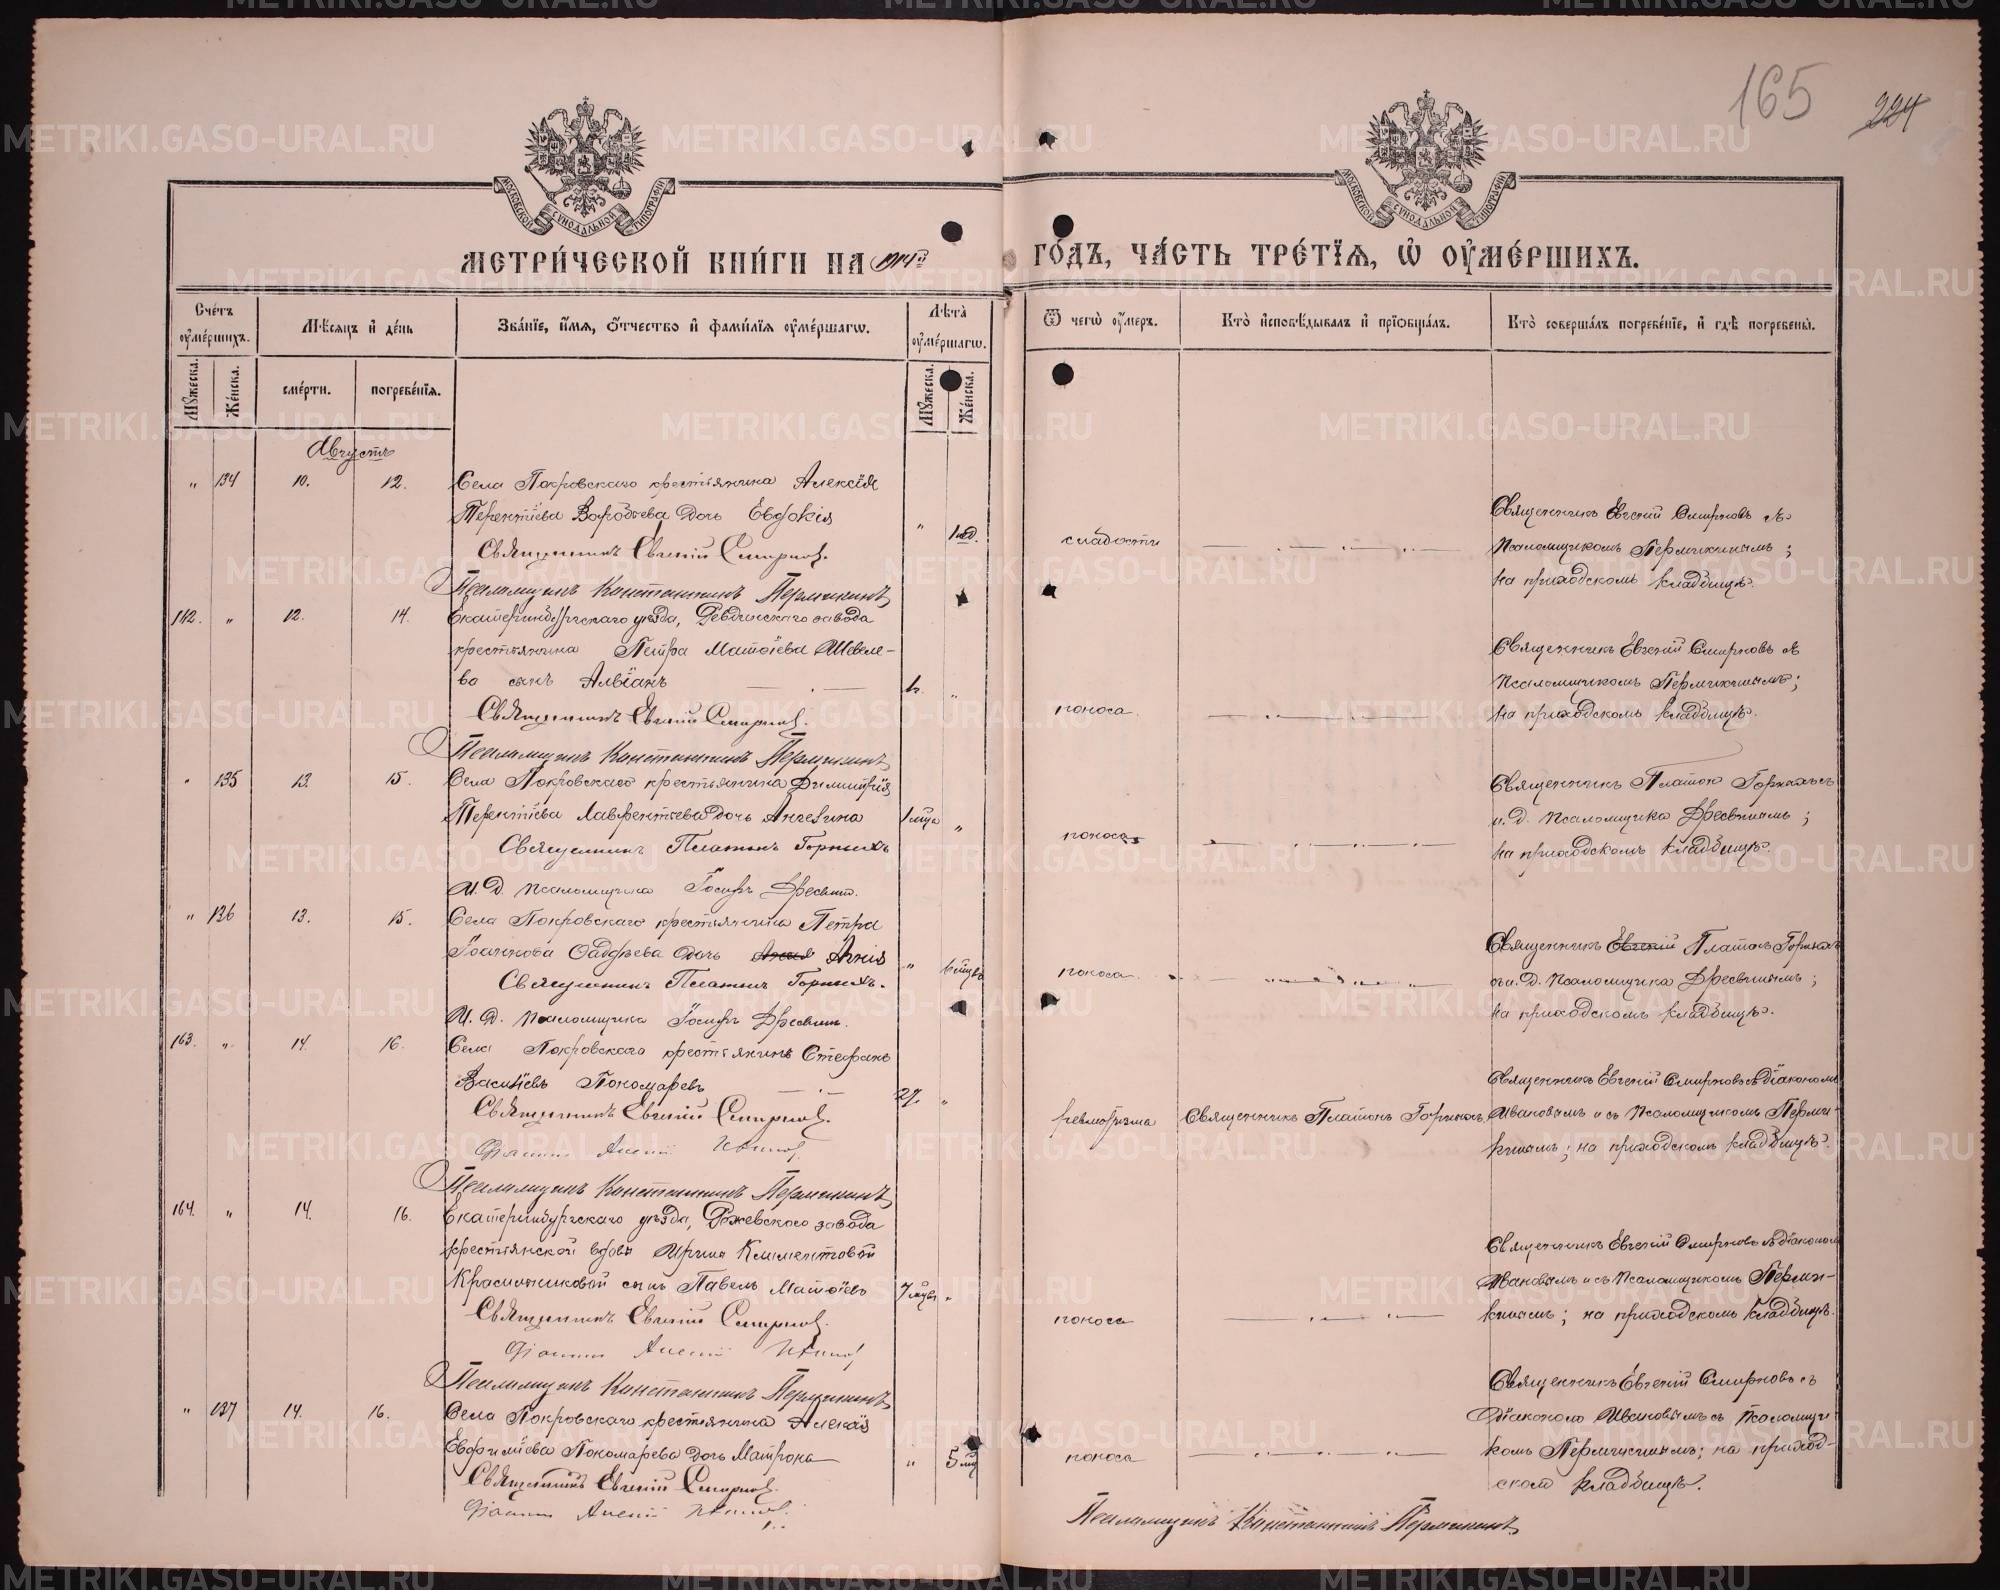 165
224
МОСКОВСКОЙ СѴНОДАЛЬНОЙ ТИПОГРАФІИ
МОСКОВСКОЙ СѴНОДАЛЬНОЙ ТИПОГРАФІИ
МЕТРИ́ЧЕСКОЙ КНИ́ГИ НА 1914й ГО́ДЪ, ЧА́СТЬ ТРЕ́ТІѦ, Ѡ҆ ОУ҆МЕ́РШИХЪ.
Сче́тъ оу҆ме́ршихъ.
Мꙋ́жеска.
Же́нска.
Мѣ́сѧцъ и҆ де́нь
сме́рти.
погребе́нїѧ.
Зва́нїе, и҆́мѧ, ѻ҆́тчество и҆ фами́лїѧ оу҆ме́ршагѡ.
Лѣ́та оу҆ме́ршагѡ.
Мꙋ́жеска.
Же́нска.
Ѿ чегѡ̀ оу҆́меръ.
Кто̀ и҆сповѣ́дывалъ и҆ прїѡбща́лъ.
Кто̀ соверша́лъ погребе́нїе, и҆ гдѣ̀ погребены̀.
Августъ
" 134 10. 12. Села Покровскаго крестьянина Алексія
Терентіева Воробьева дочь Евдокія " 1 нед. слабости
Священникъ Евгеній Смирновъ.
Псаломщикъ Константинъ Пермикинъ
Священникъ Евгеній Смирновъ съ
Псаломщикомъ Пермикинымъ;
на приходскомъ кладбищѣ.
162. " 12. 14. Екатеринбургскаго уѣзда, Ревдинскаго завода
крестьянина Петра Матѳіева Шевеле-
ва сынъ Алвіанъ "
поноса
Священникъ Евгеній Смирновъ.
Псаломщикъ Константинъ Пермикинъ
Священникъ Евгеній Смирновъ съ
Псаломщикомъ Пермикинымъ;
на приходскомъ кладбищѣ.
" 135 13. 15. Села Покровскаго крестьянина Димитрія
Терентіева Лаврентьева дочь Ангелина 1 мца "
поноса
Священникъ Платонъ Горныхъ
И. д. псаломщика Іосифъ Дресвин.
Священникъ Платонъ Горныхъ съ
и. д. Псаломщика Дресвинымъ;
на приходскомъ кладбищѣ.
" 136 13. 15. Села Покровскаго крестьянина Петра
Іоаннова дочь Аннія " 6 мцвъ
поноса
Священникъ Платонъ Горныхъ.
И. д. псаломщика Іосифъ Дресвин.
Священникъ Евгеній Платонъ Горныхъ
съ и. д. Псаломщика Дресвинымъ;
на приходскомъ кладбищѣ.
163. " 14. 16. Села Покровскаго крестьянинъ Стефанъ
Василіевъ Пономаревъ 27. "
ревматизма Священникъ Платонъ Горныхъ
Священникъ Евгеній Смирновъ.
Діаконъ Иванов
Псаломщикъ Константинъ Пермикинъ
Священникъ Евгеній Смирновъ съ діакономъ
Ивановымъ и съ Псаломщикомъ Перми-
кинымъ; на приходскомъ кладбищѣ.
164. " 14. 16. Екатеринбургскаго уѣзда, завода
крестьянской вдовы Ирины Климентовой
Красильниковой сынъ Павелъ Матѳіевъ 7 мцвъ "
поноса
Священникъ Евгеній Смирновъ.
Діаконъ Иванов
Псаломщикъ Константинъ Пермикинъ
Священникъ Евгеній Смирновъ съ діакономъ
Ивановымъ и съ Псаломщикомъ Перми-
кинымъ; на приходскомъ кладбищѣ.
" 137 14. 16. Села Покровскаго крестьянина Алексія
Евфиміева Пономарева дочь Матрона " 5 мц
поноса
Священникъ Евгеній Смирновъ.
Діаконъ Иванов
Священникъ Евгеній Смирновъ съ
діакономъ Ивановымъ съ Псаломщи-
комъ Пермикинымъ; на приход-
скомъ кладбищѣ.
Псаломщикъ Константинъ Пермикинъ
METRIKI.GASO-URAL.RU